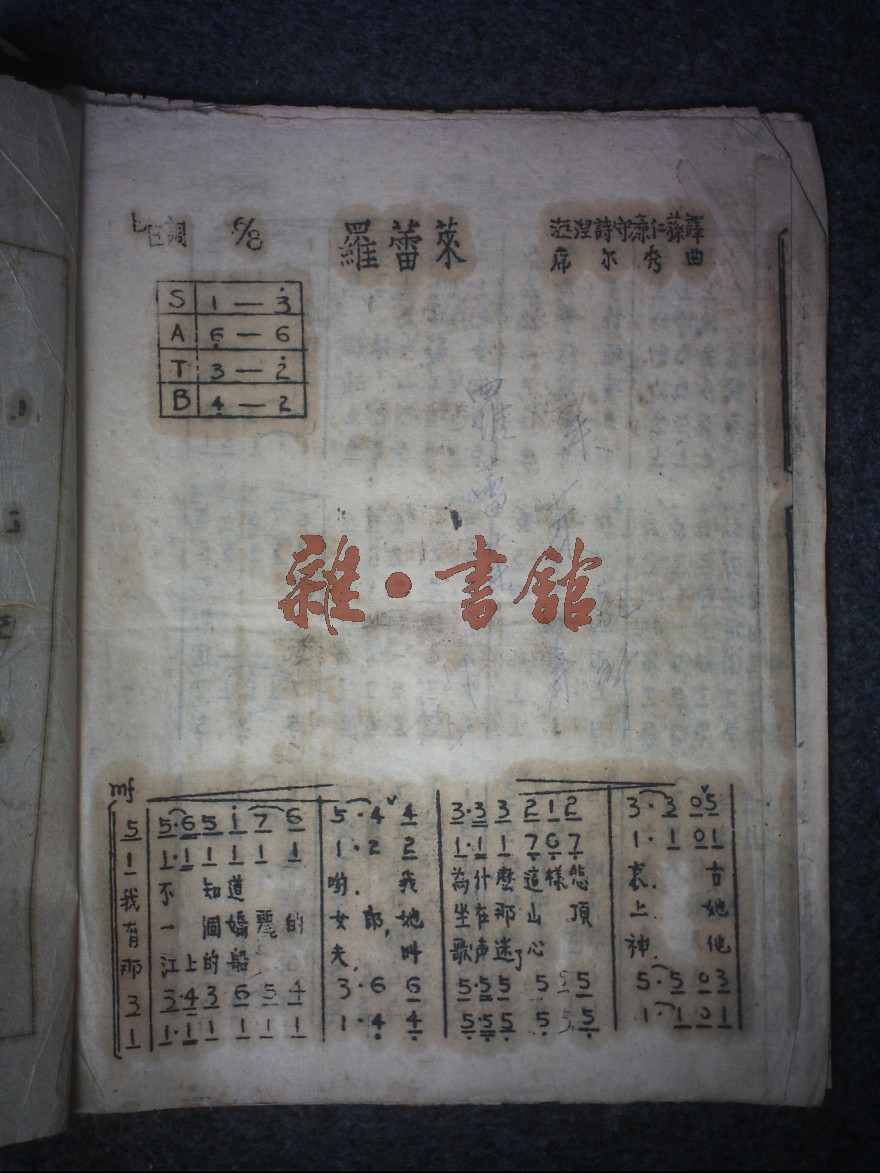 ♭E調 6/8 羅蕾萊 海涅詩 守廉 仁蓀譯
席尔秀曲
S 1 — 3̇
A 6̣ — 6
T 3 — 2̇
B 4̣ — 2
羅蕾
雜·書館
mf
5 5·6 5 i 7 6 5·4 4 3·3 3 2 1 2 3·3 0 5
1 1·1 1 1 1 1 1·2 2 1·1 1 7̣ 6̣ 7̣ 1·1 0 1
我不知道 喲,我為什麽這樣悲哀.古
有一個嬌麗的女郎,她坐在那山頂上.她
那江上的船夫.叫歌声迷了心神.他
3 3·4 3 6 5 4 3·6 6 5·5 5 5 5 5 5·5 0 3
1 1·1 1 1 1 1 1·4̣ 4̣ 5̣·5̣ 5̣ 5̣ 5̣ 5̣ 1·1 0 1